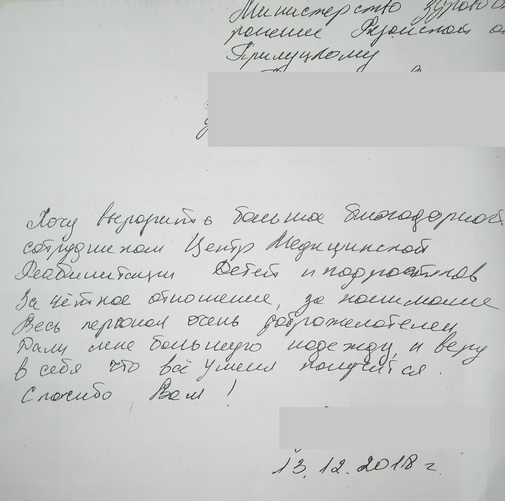 Министерство здравоо
ранение Рязанской о
Прилуцкому
Хочу вырозить большое благодарност
сотрудником Центр Медицинской
Реабилитации Детей и подростков
За чёткое отношение, за понимание
Весь персонал очень доброжелателен
Дали мне большую надежду, и веру
в себя что всё у меня получится.
Спасибо Вам!
13.12.2018 г.